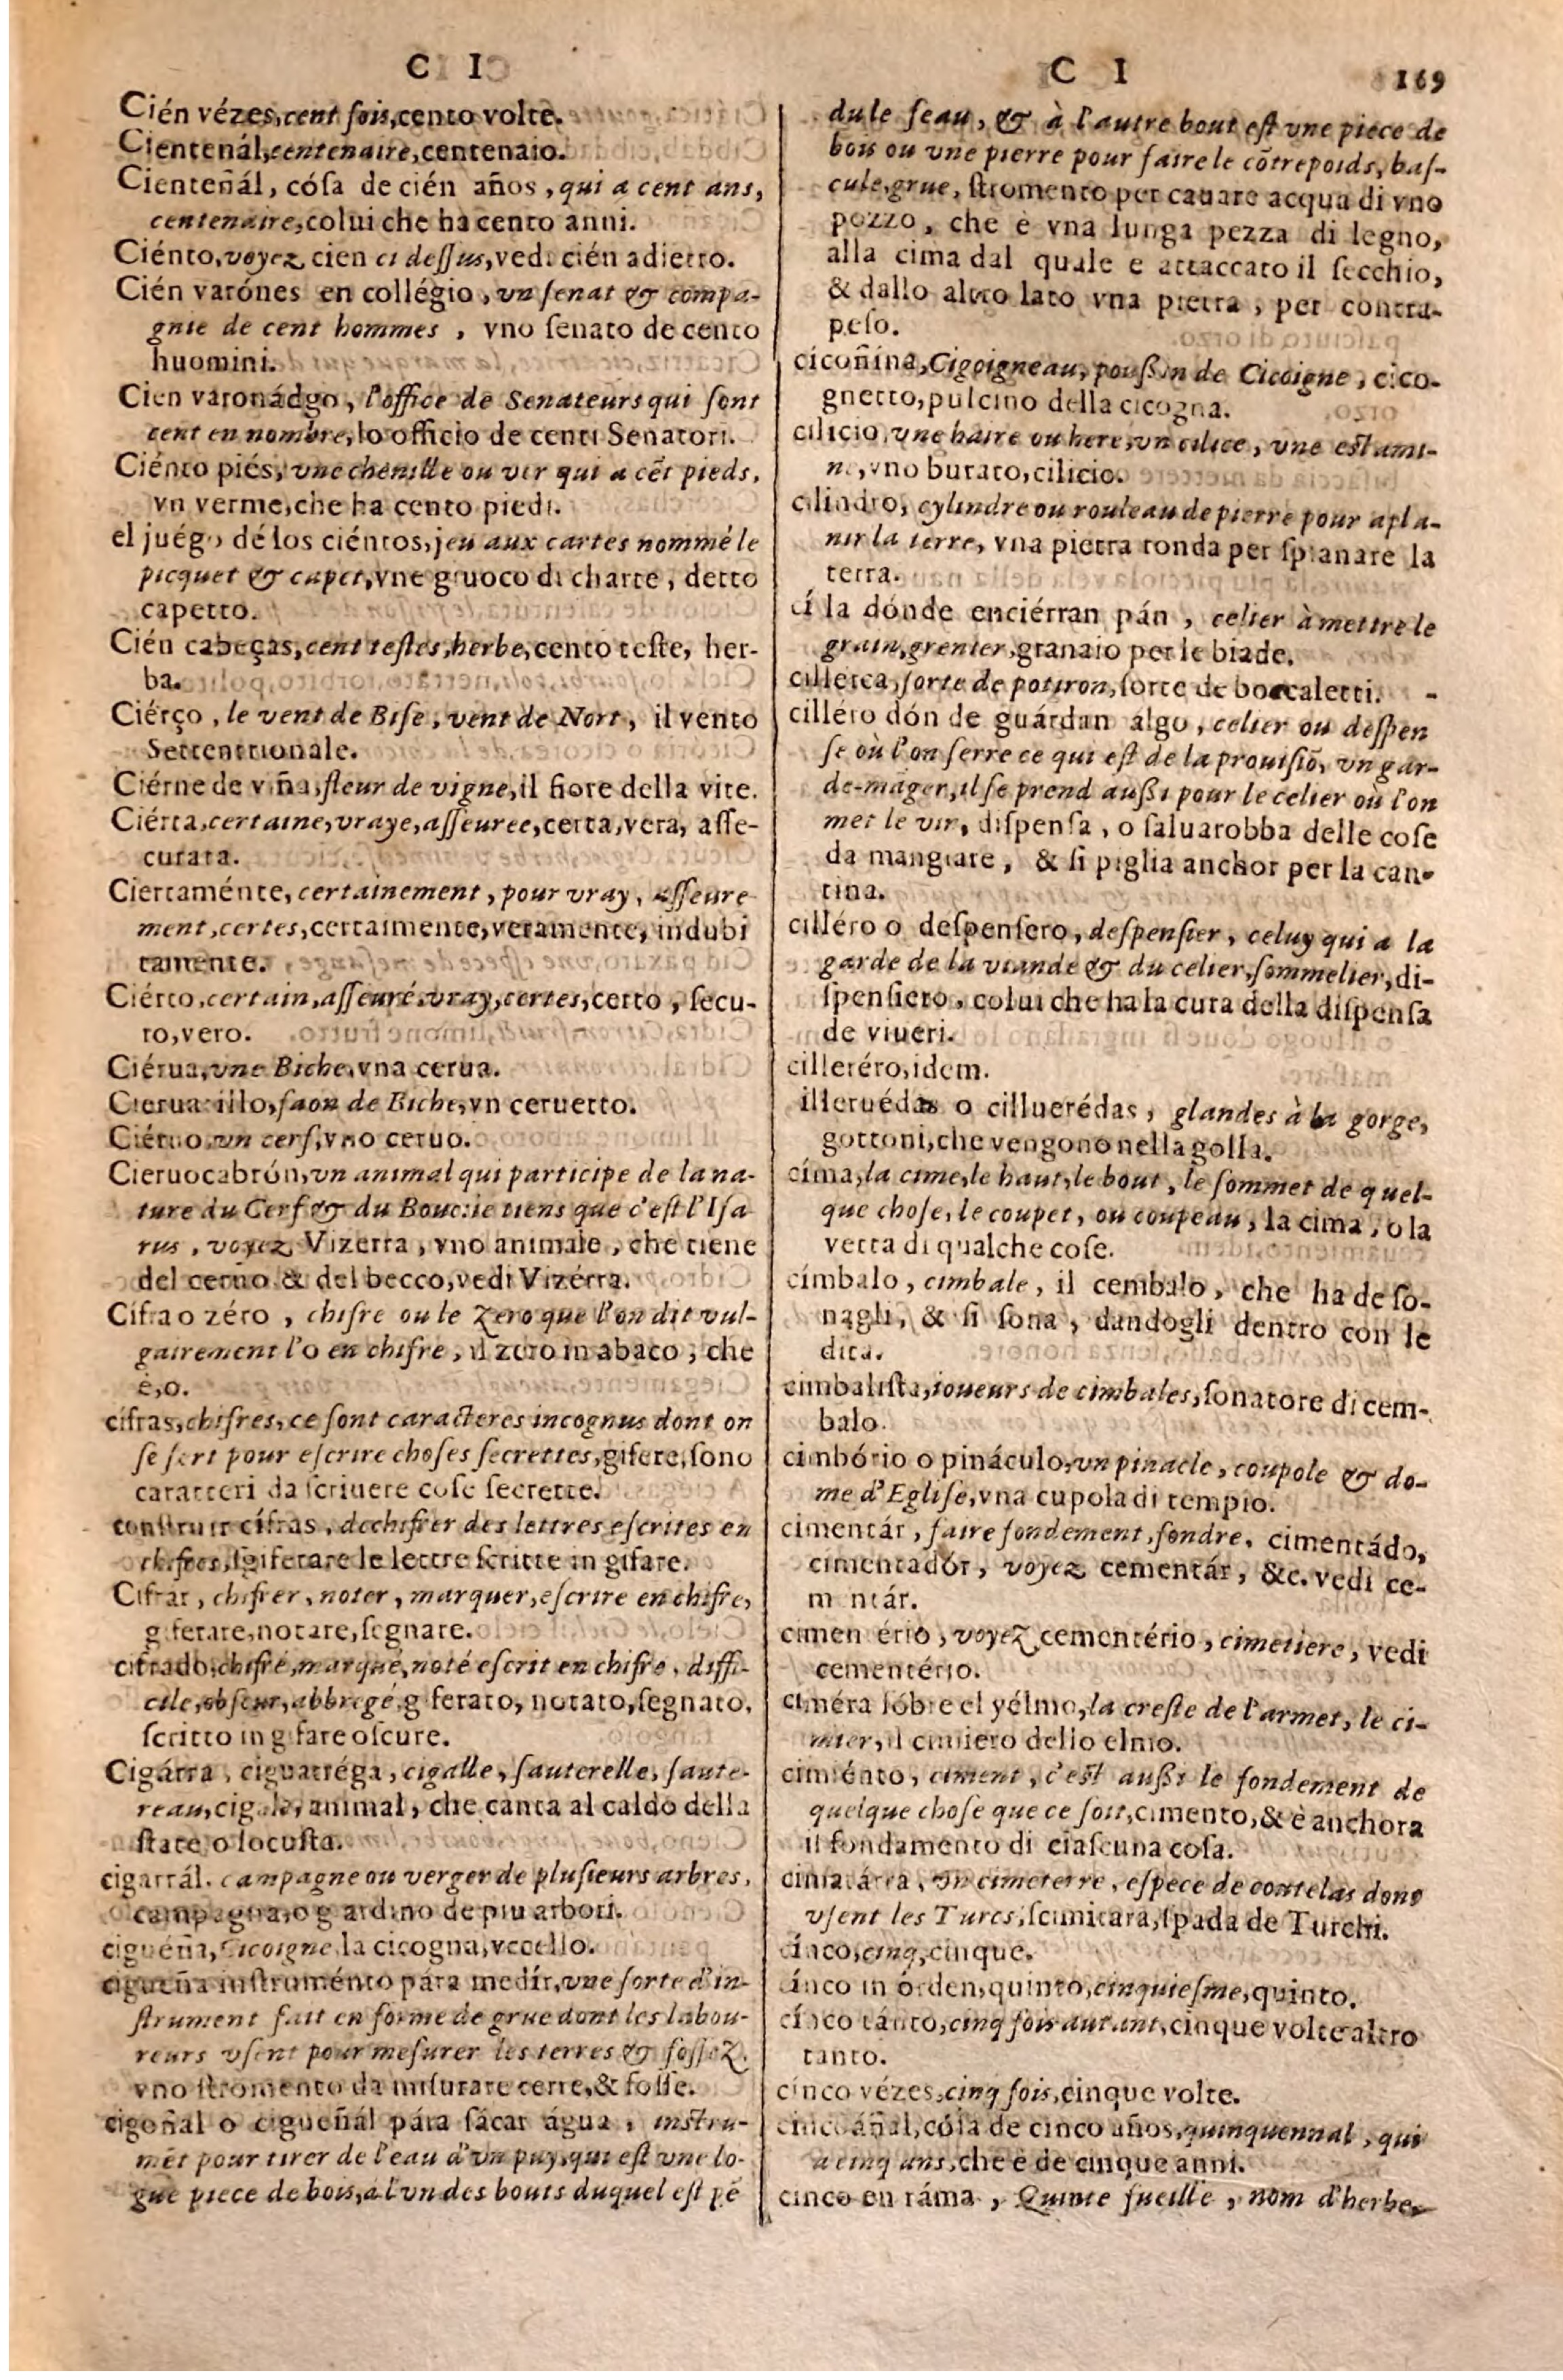 C I
Cién vézes, cent fois, cento volte.
Cientenál, centenaire, centenaio.
Cienteñál, cósa de cién años, qui a cent ans,
centenaire, colui che ha cento anni.
Ciénto, voyez cien ci deſſus, vedi cién adietro.
Cién varónes en collégio, vn ſenat & compa-
gnie de cent hommes, vno ſenato de cento
huomini.
Cien varonádgo, l'office de Senateurs qui ſont
cent en nombre, lo officio de centi Senatori.
Ciénto piés, vne chenille ou ver qui a cẽt pieds,
vn verme, che ha cento piedi.
el juégo dé los ciéntos, jeu aux cartes nommé le
picquet & capet, vne giuoco di charte, detto
capetto.
Cién cabeças, cent teſtes, herbe, cento teſte, her-
ba.
Ciérço, le vent de Biſe, vent de Nort, il vento
Settentrionale.
Ciérne de viña, fleur de vigne, il fiore della vite.
Ciérta, certaine, vraye, aſſeuree, certa, vera, aſſe-
curata.
Ciertaménte, certainement, pour vray, aſſeure
ment, certes, certaimente, veramente, indubi
tamente.
Ciérto, certain, aſſeuré, vray, certes, certo, ſecu-
ro, vero.
Ciérua, vne Biche, vna cerua.
Cieruatillo, faon de Biche, vn ceruetto.
Ciéruo, vn cerf, vno ceruo.
Cieruocabrón, vn animal qui participe de la na-
ture du Cerf & du Bouc: ie tiens que c'eſt l'Iſa
rus, voyez Vizerra, vno animale, che tiene
del ceruo & del becco, vedi Vizérra.
Cifra o zéro, chifre ou le zero que l'on dit vul-
gairement l'o en chifre, il zero in abaco, che
è, o.
cífras, chifres, ce ſont caracteres incognus dont on
ſe ſert pour eſcrire choſes ſecrettes, gifere, ſono
caratteri da ſcriuere coſe ſecrette.
conſtruir cífras, dechifrer des lettres eſcrites en
chifres, ſgiferare le lettre ſcritte in gifare.
Cifrár, chifrer, noter, marquer, eſcrire en chifre,
giferare, notare, ſegnare.
cifrado, chifré, marqué, noté eſcrit en chifre, diffi-
cile, obſcur, abbregé, giferato, notato, ſegnato,
ſcritto in gifare oſcure.
Cigárra, ciguarréga, cigalle, ſauterelle, ſaute-
reau, cigale, animal, che canta al caldo della
ſtate o locuſta.
cigarrál, campagne ou verger de pluſieurs arbres,
campagna, o giardino de piu arbori.
ciguéña, Cicoigne, la cicogna, vccello.
cigueña inſtruménto pára medír, vne ſorte d'in-
ſtrument fait en forme de grue dont les labou-
reurs vſent pour meſurer les terres & foſſez,
vno ſtromento da miſurare terre, & foſſe.
cigoñal o cigueñál pára ſácar água, inſtru-
mẽt pour tirer de l'eau d'vn puy, qui eſt vne lo-
gue piece de bois, à l'vn des bouts duquel eſt pẽ
C I
169
du le ſeau, & à l'autre bout eſt vne piece de
bois ou vne pierre pour faire le cõtrepoids, baſ-
cule, grue, ſtromento per cauare acqua di vno
pozzo, che è vna lunga pezza di legno,
alla cima dal quale e attaccato il ſecchio,
& dallo altro lato vna pietra, per contra-
peſo.
cicoñina, Cigoigneau, pouſſin de Cicoigne, cico-
gnetto, pulcino della cicogna.
cilicio, vne haire ou here, vn cilice, vne eſtami-
ne, vno burato, cilicio.
cilindro, cylindre ou rouleau de pierre pour apla-
nir la terre, vna pietra tonda per ſpianare la
terra.
cílla dónde enciérran pán, celier à mettre le
grain, grenier, granaio per le biade.
cillérca, ſorte de potiron, ſorte de boccaletti.
cilléro dón de guárdan algo, celier ou deſpen
ſe où l'on ſerre ce qui eſt de la prouiſiõ, vn gar-
de-mãger, il ſe prend auſſi pour le celier où l'on
met le vin, diſpenſa, o ſaluarobba delle coſe
da mangiare, & ſi piglia anchor per la can-
tina.
cilléro o deſpenſero, deſpenſier, celuy qui a la
garde de la viande & du celier, ſommelier, di-
ſpenſiero, colui che ha la cura della diſpenſa
de viueri.
cilleréro, idem.
illeruédas o cilluerédas, glandes à la gorge,
gottoni, che vengono nella golla.
címa, la cime, le haut, le bout, le ſommet de quel-
que choſe, le coupet, ou coupeau, la cima, o la
vetta di qualche coſe.
címbalo, cimbale, il cembalo, che ha de ſo-
nagli, & ſi ſona, dandogli dentro con le
dita.
cimbaliſta, ioueurs de cimbales, ſonatore di cem-
balo.
cimbório o pináculo, vn pinacle, coupole & do-
me d'Egliſe, vna cupola di tempio.
cimentár, faire fondement, fondre. cimentádo,
cimentadór, voyez cementár, &c. vedi ce-
mentár.
cimenterio, voyez cementério, cimetiere, vedi
cementério.
ciméra ſóbre el yélmo, la creſte de l'armet, le ci-
mier, il cimiero dello elmo.
cimiénto, ciment, c'eſt auſſi le fondement de
quelque choſe que ce ſoit, cimento, & è anchora
il fondamento di ciaſcuna coſa.
cimitárra, vn cimeterre, eſpece de coutelas dont
vſent les Turcs, ſcimitara, ſpada de Turchi.
cínco, cinq, cinque.
cínco in órden, quinto, cinquieſme, quinto.
cínco tánto, cinq fois autant, cinque volte altro
tanto.
cínco vézes, cinq fois, cinque volte.
cincoáñal, cóſa de cinco años, quinquennal, qui
a cinq ans, che è de cinque anni.
cinco en ráma, Quinte fueille, nom d'herbe,